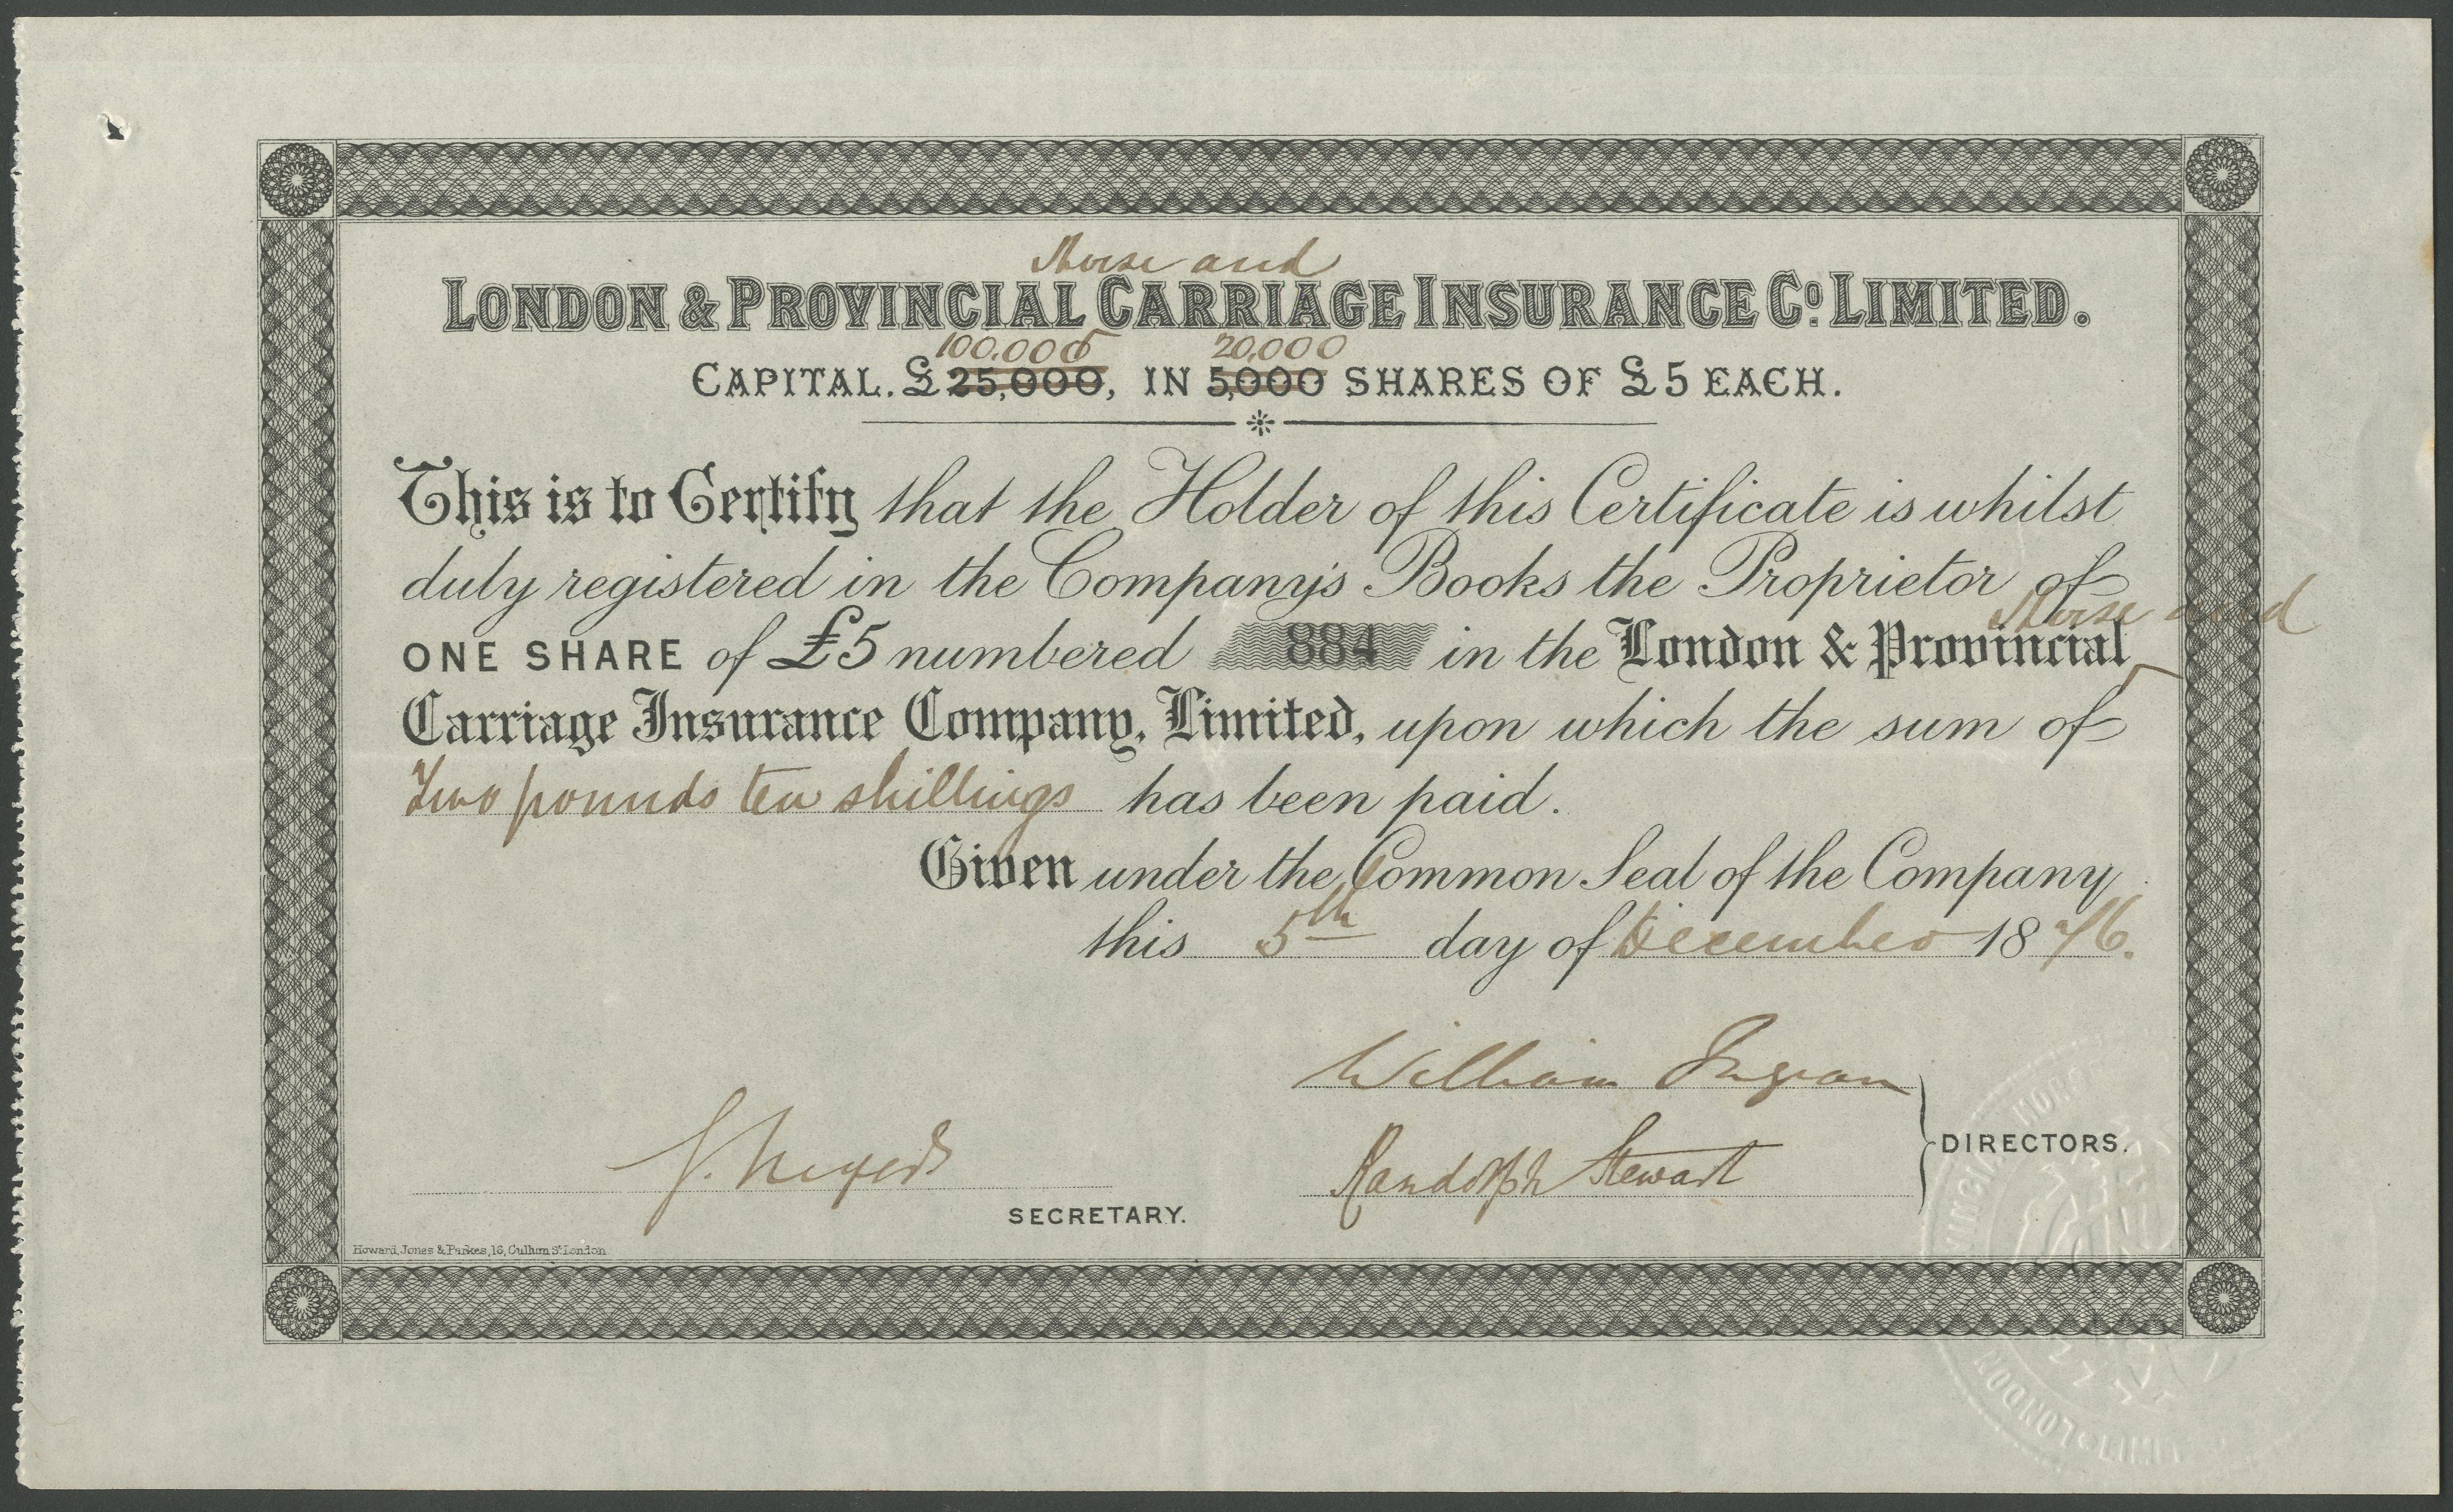 Horse and
LONDON & PROVINCIAL CARRIAGE INSURANCE Co. LIMITED.
100,000 20,000
CAPITAL. £25,000, IN 5,000 SHARES OF £5 EACH.
This is to Certify that the Holder of this Certificate is whilst
duly registered in the Company's Books the Proprietor of
Horse and
ONE SHARE of £5 numbered 884 in the London & Provincial
Carriage Insurance Company, Limited, upon which the sum of
Two pounds ten shillings has been paid.
Given under the Common Seal of the Company
this 5th day of December 1876.
William Ingram
DIRECTORS.
Randolph Stewart
SECRETARY.
Howard, Jones & Parkes, 16, Cullum St London